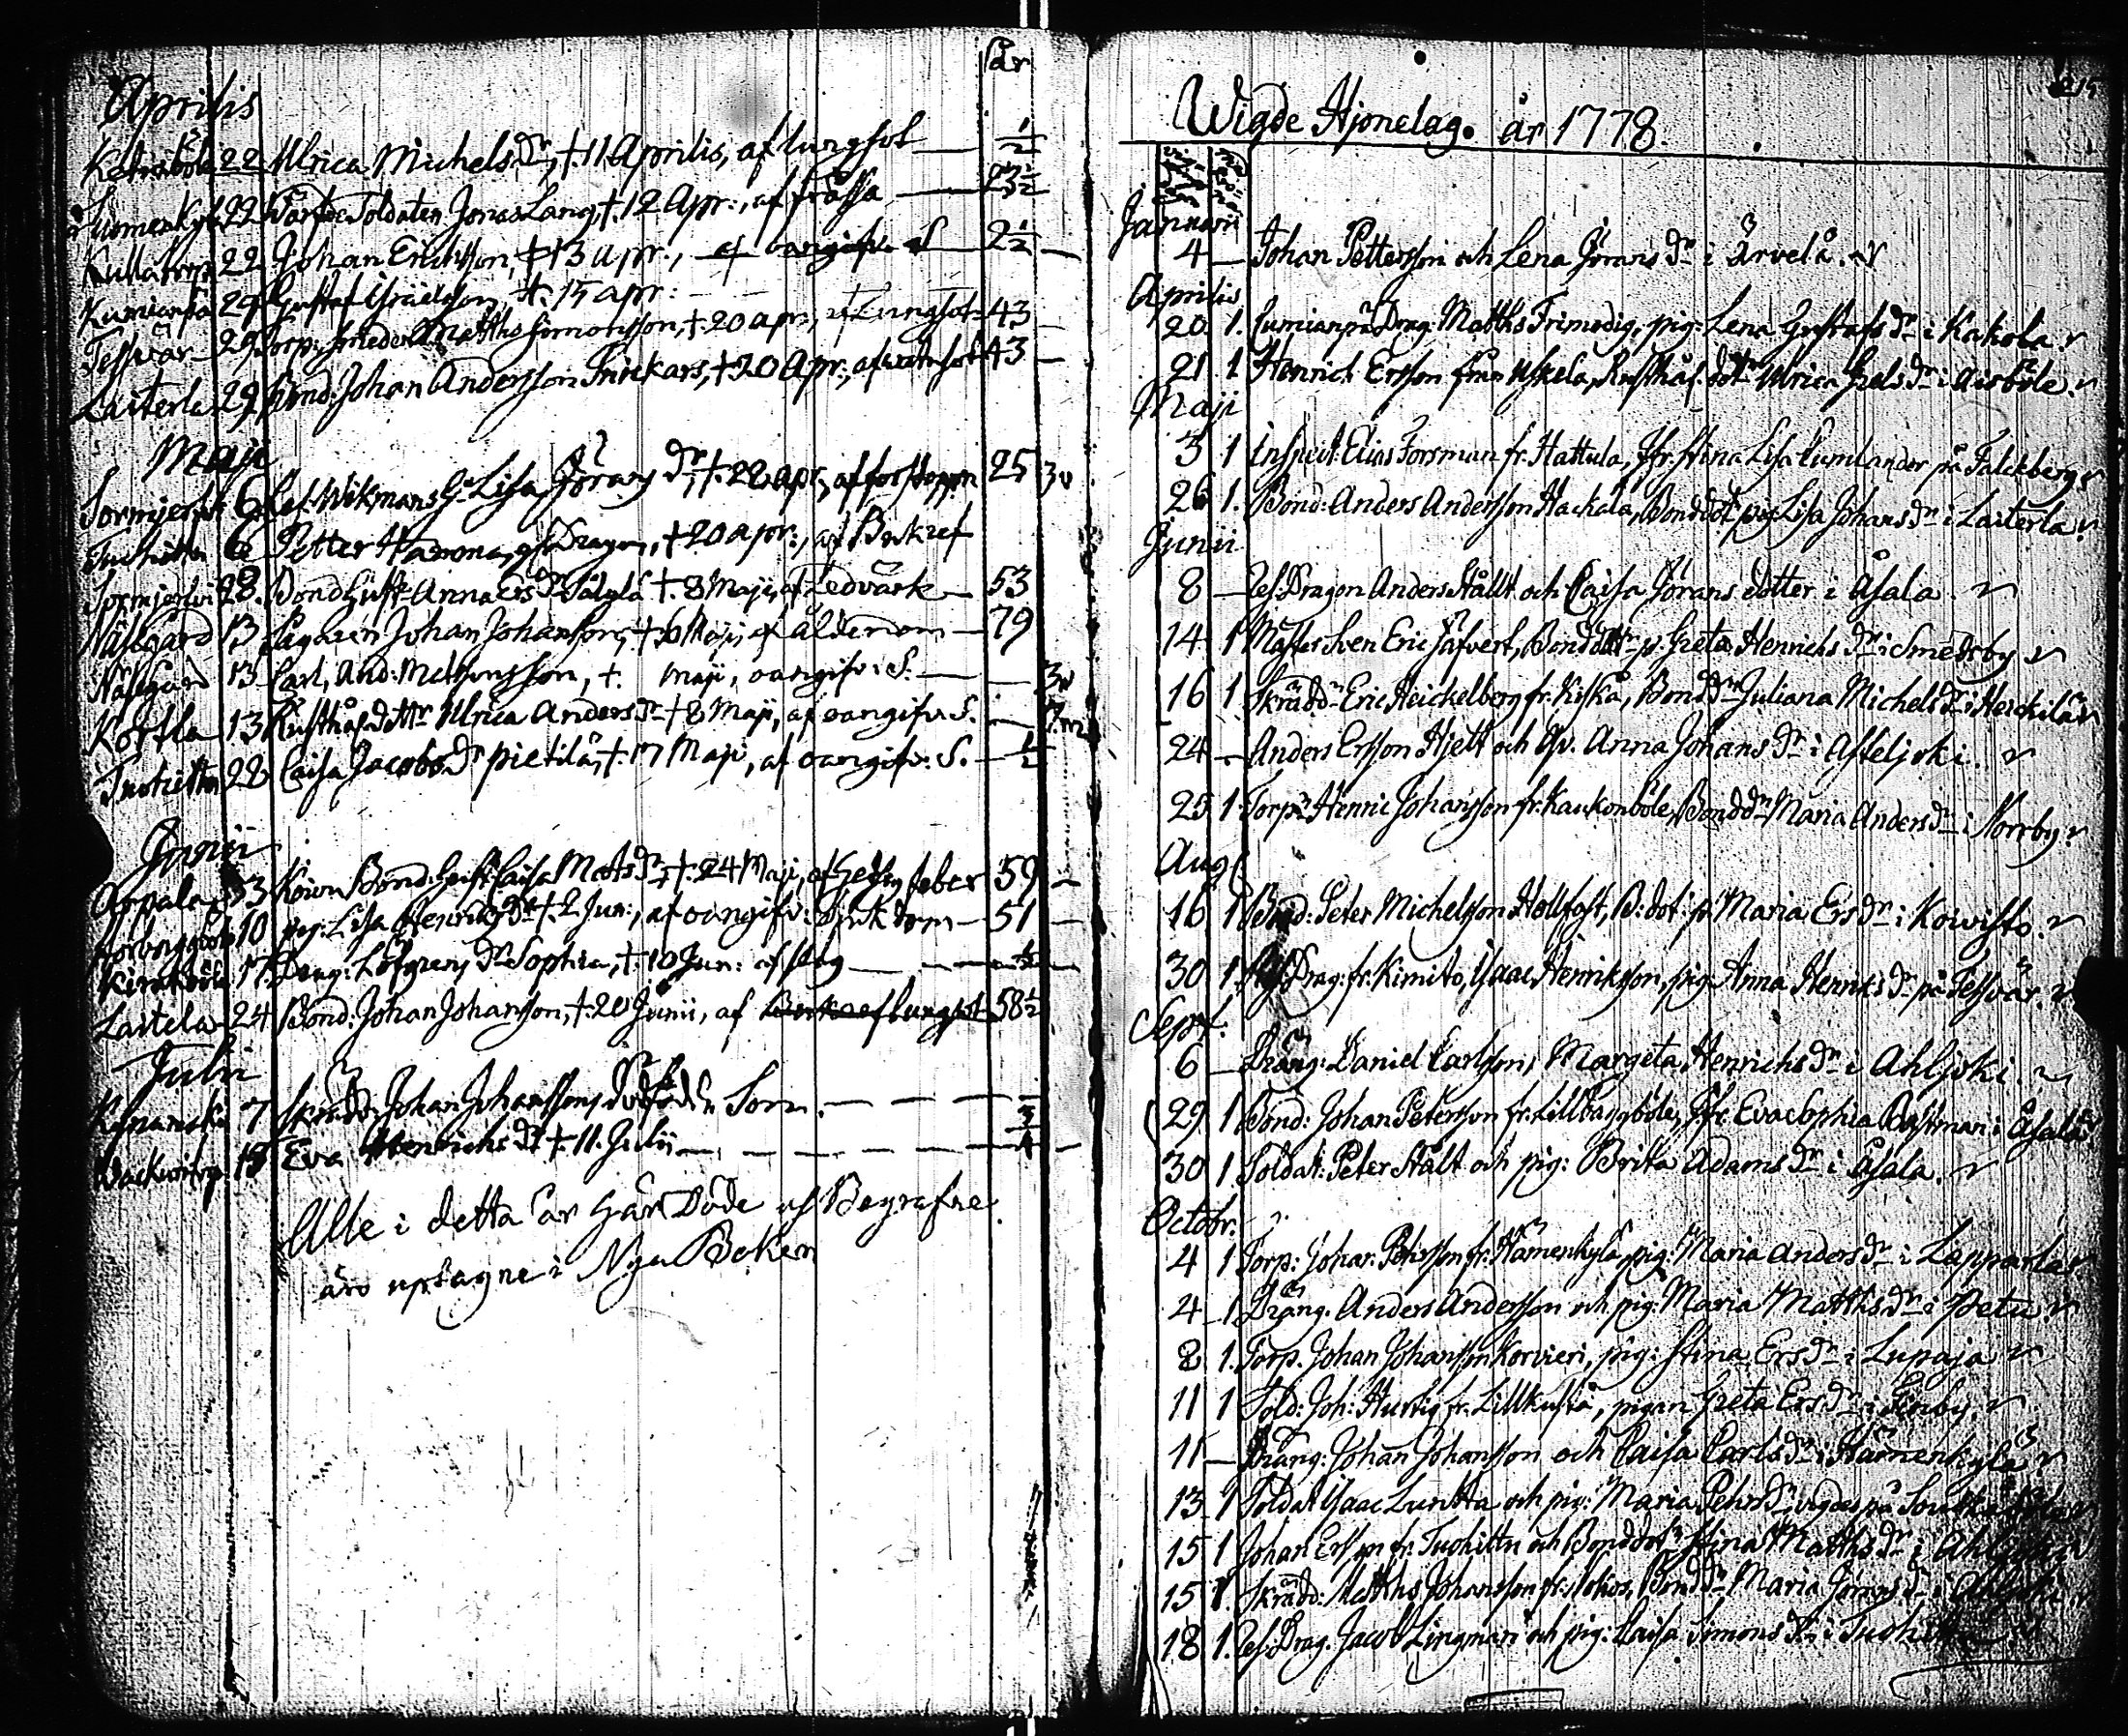 år
Aprilis
Ketrisböle 22 Ulrica Michels Dr, †. 11 Aprilis, af lungsot — 1/2
Suomenkylä 22 Wärfde Soldaten Jonas Lang, †. 12 Apr:, af frossa — 23 1/2
Kullatorp 22 Johan Erichsson, † 13 apr., 2 1/2 —
29 Gustaf Israelsson, †. 15 apr:
Tessvär 29 Torp: Smeden Matths Simonsson, † 20 apr:, af Lungsot 43
Laiterla 29 Bond: Johan Andersson Snickars, † 20 Apr:, af 43 —
Maji
Sormjerfvi 6 Wikmans H: Lisa Jörans Dr, †. 22 apr, af förstoppn 25
Tuohittu 6 Petter Hamma, Dragon, † 20 apr:, af
Sormjerfvi 28. Bond Hust Anna Ers Dr Sälylä †. 8 Maji, af Ledvärk — 53
Näsegård 13 Johan Johansson, † 6 Maji, af ålderdom — 79
Näsegård 13 Carl, And: Mattssons son, †. maji, oangifv: S. —
Kortla 13 Rusthåf Dottr Ulrica Anders Dr † 8 Maji, af oangifv. S. —
Tuohittu 22 Caisa Jacobs Dr pietilä, †. 17 Maji, af oangifv: S. — 1/2
Junii
Arpala 3 Koivu Bond: Hust Caisa Mats Dr, †. 24 Maji, af Hetsig feber 59 —
10 pig: Lisa Henrichs Dr †. 2 Jun:, af oangifv: Siukdom — 51 —
Kirakböle 17 Drag: Löfgrens Dr Sophia, †. 10 Jun: af slag —
Laitela 24 Bond: Johan Johansson, †. 20 Junii, af lungsot 58 1/2
Julii
7 Skrädd: Johan Johanssons dödfödde Son. — — —
Eva Henrichs Dr † 11. Julii — — — 3/4 —
Alle i detta år här Döde och Begrafne
äro uptagne i Nya Boken
215
Wigde Hjonelag. år 1778.
Januarii
4 — Johan Pettersson och Lena Görans Dr i Ärvelä.
Aprilis
20. 1. Cumianpä Drag: Matths Frimodig, pig: Lena Gustafs Dr i Kakola.
21. 1 Henrich Ersson från Uskela, Rusthåf. dotr Ulrica Isels Dr i Aisböle.
Maji
3 1 Inspect: Elias Forsman fr. Hattula, Jfr. Stina Lisa Cumlander på Falckberg
26 1. Bond: Anders Andersson Hackala, Bond dot pig Lisa Johans Dr i Laiterla.
Junii
8 — Ref: Dragon Anders Stållt och Caisa Jörans dotter i Åsala.
14 1 Mäster Sven Eric Säfvert, Bond dotr p. Greta Henrichs Dr i Smedsby
16 1 Skrädd Eric Heickelberg fr. Kiskå, Bond Dr Juliana Michels Dr i Heickilä
24 — Anders Ersson Hjelt och Qv. Anna Johans Dr i Asteljoki.
25 1. Torpr Henric Johansson fr. Kaukonböle, Bond Dr Maria Anders Dr i Norrby.
Aug:
16 1 Bond: Peter Michelsson Hollfast, B: dot pi Maria Ers Dr i Koivisto.
30 1. Drag: fr. Kimito, Isaac Henriksson, pig Anna Henriks Dr på Tessvär.
Sept:
6 — Dräng: Daniel Carlsson, Margeta Henrichs Dr i Ahljoki.
29 1 Bond: Johan Petersson fr. Lillbaggböle, Jfr. Eva Sophia Bastman i Åsala
30 1. Soldat: Peter Stålt och pig: Brita Adams Dr i Åsala.
Octobr.
4 1 Torp: Johan: Pehrsson fr. Hämenkylä, pig: Maria Anders Dr i Lapparla
4 1 Dräng. Anders Andersson och pig: Maria Matths Dr i Petu.
8 1. Torp. Johan Johansson Korvieri, pig: Stina Ers Dr i Lupaja
11 1 Sold: Joh: Hurtig fr. Lillkuskä, pigan Greta Ers Dr i Finby.
11 — Dräng: Johan Johansson och Caisa Carls Dr i Hämenkylä
13 1 Soldat Isaac Luntta och pig: Maria Pehrs Dr vigdes på
15 1 Johan Ersson fr. Tuohittu och Bond dotr Stina Matths Dr i Ahljoki
15 1. Skrädd: Matths Johansson fr. Bond Dr Maria Jörans Dr i Ahljoki
18 1. Ref: Drag. Jacob Lingman och pig: Caisa Simons Dr i Tuohittu